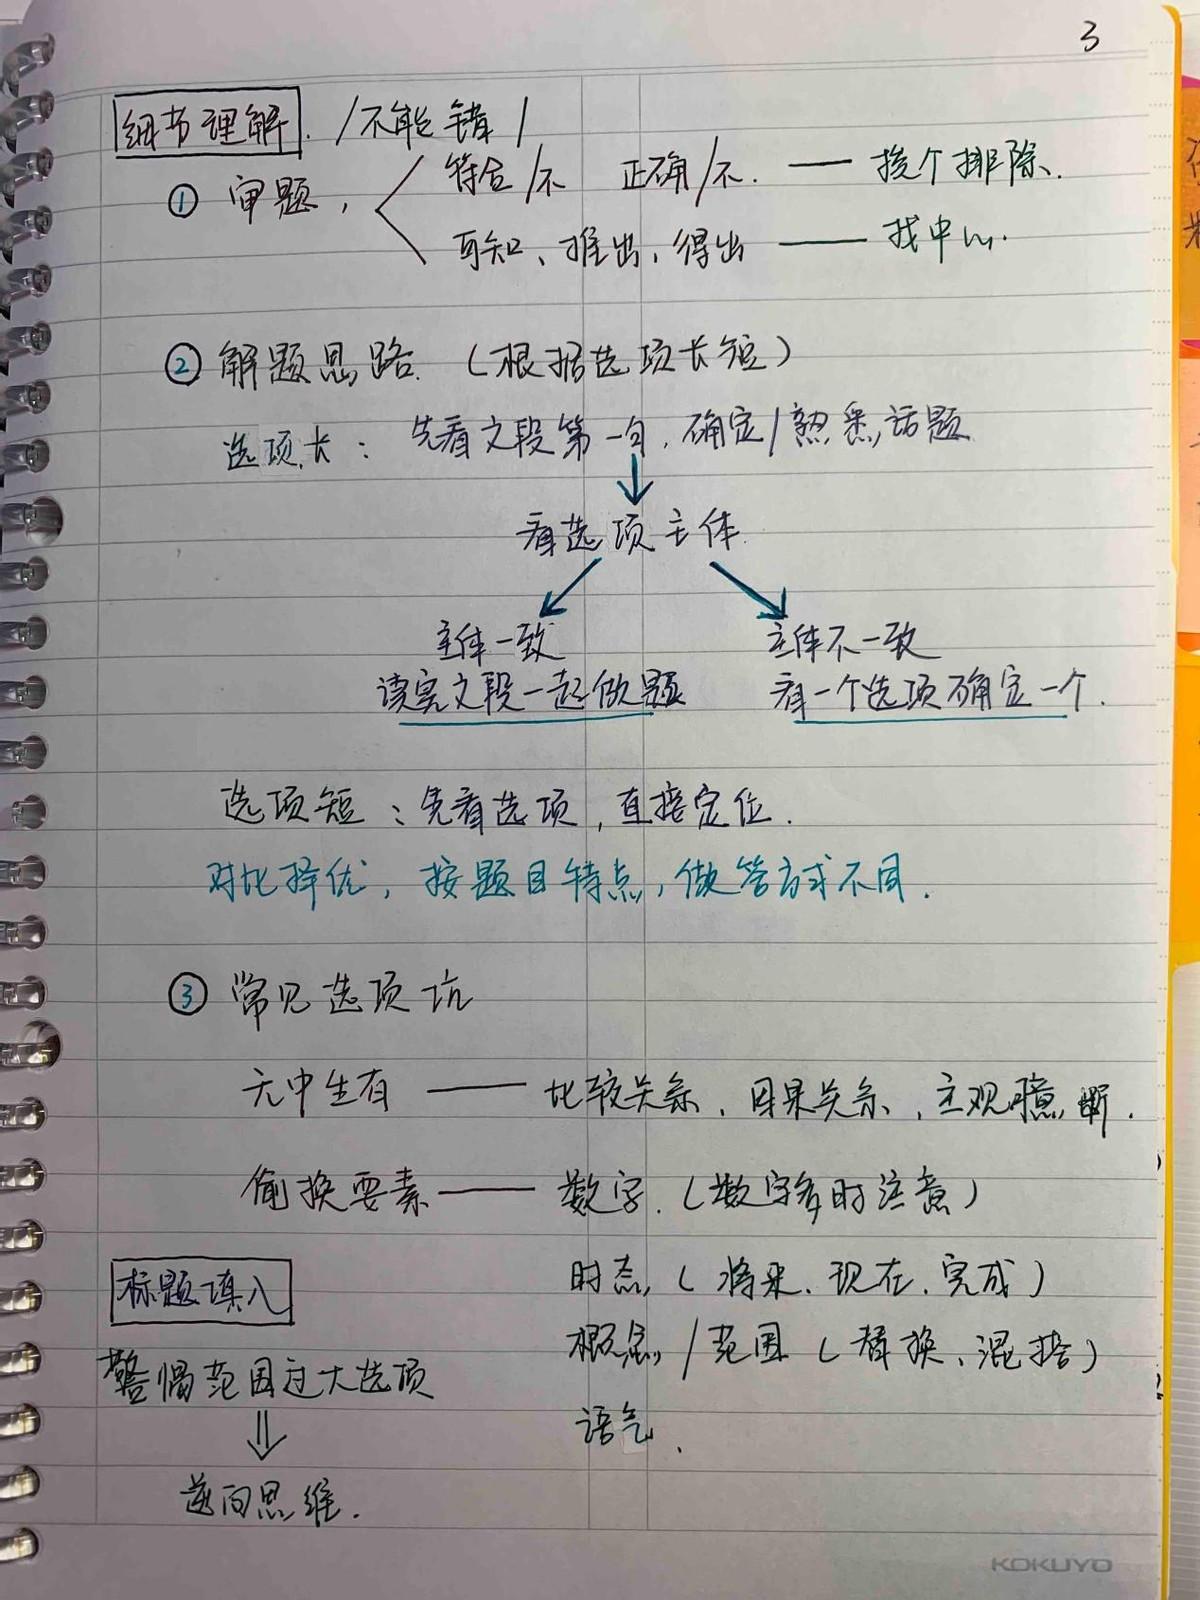 3
细节理解. /不能错/
① 审题, 符合/不 正确/不. —— 挨个排除.
可知、推出、得出 —— 找中心.
② 解题思路. (根据选项长短)
选项长: 先看文段第一句, 确定/熟悉话题
看选项主体.
主体一致 主体不一致
读完文段一起做题 看一个选项确定一个.
选项短: 先看选项, 直接定位.
对比择优, 按题目特点, 做答方式不同.
③ 常见选项坑
无中生有 —— 比较关系、因果关系, 主观臆断.
偷换要素 —— 数字. (数字多时注意)
时态 (将来、现在、完成)
标题填入
概念/范围 (替换、混搭)
警惕范围过大选项
语气.
逆向思维.
KOKUYO